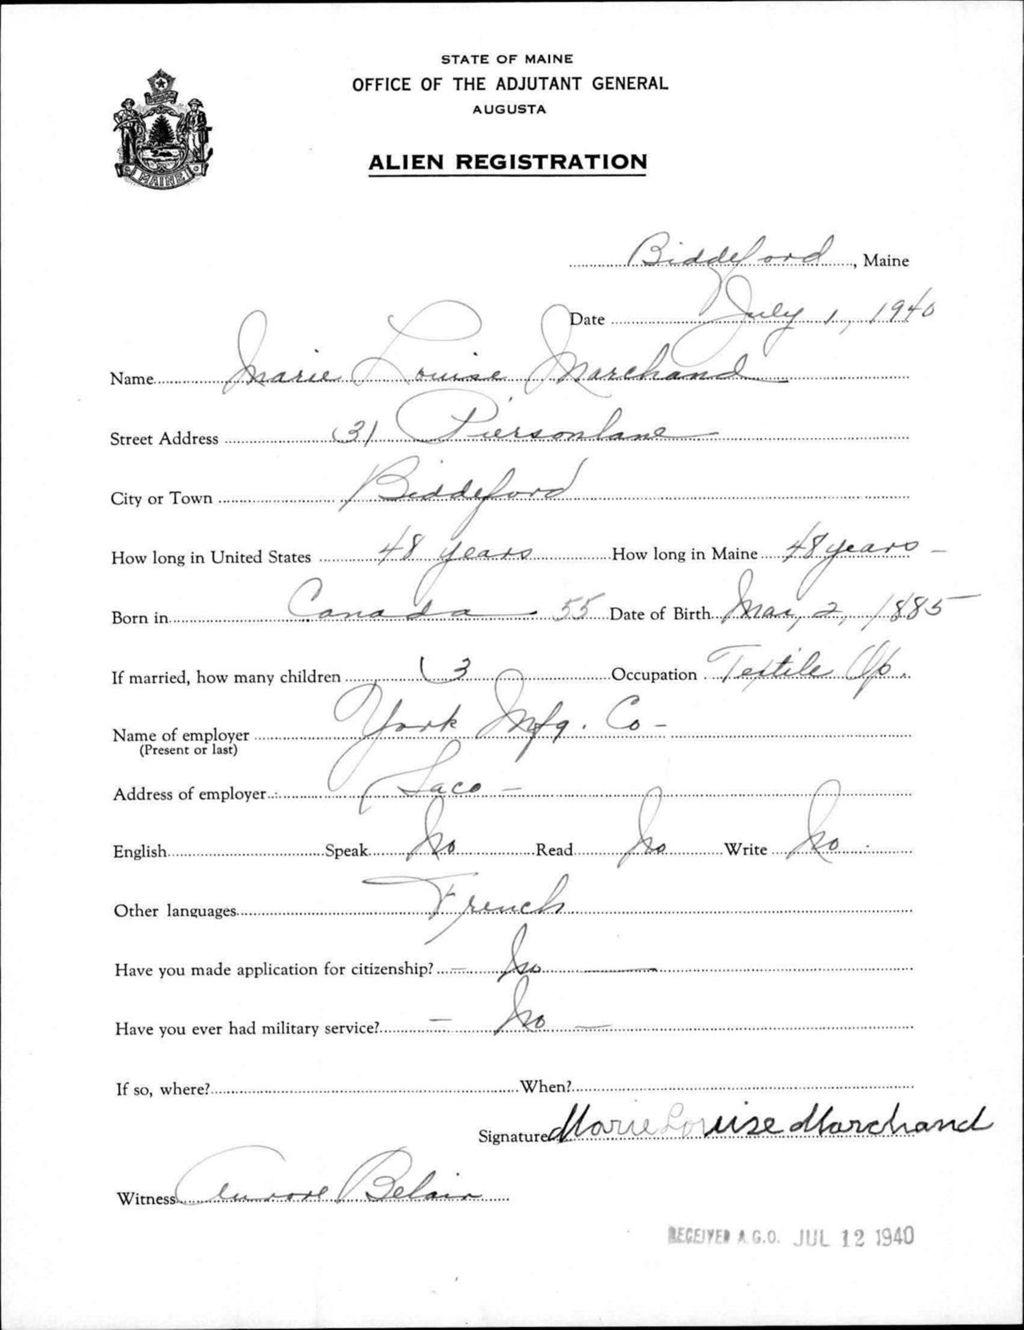 STATE OF MAINE
OFFICE OF THE ADJUTANT GENERAL
AUGUSTA
ALIEN REGISTRATION
MAINE
Biddeford, Maine
Date July 1, 1940
Name Marie Louise Marchand
Street Address 31 Piersonlane
City or Town Biddeford
How long in United States 48 years How long in Maine 48 years -
Born in Canada 55 Date of Birth Mar, 2, 1885
If married, how many children 3 Occupation Textile Op.
Name of employer York Mfg. Co -
(Present or last)
Address of employer Saco -
English Speak No Read No Write No
Other languages French
Have you made application for citizenship? - No -
Have you ever had military service? - No -
If so, where? When?
Signature Marie Louise Marchand
Witness Aurore Belair
RECEIVED A.G.O. JUL 12 1940